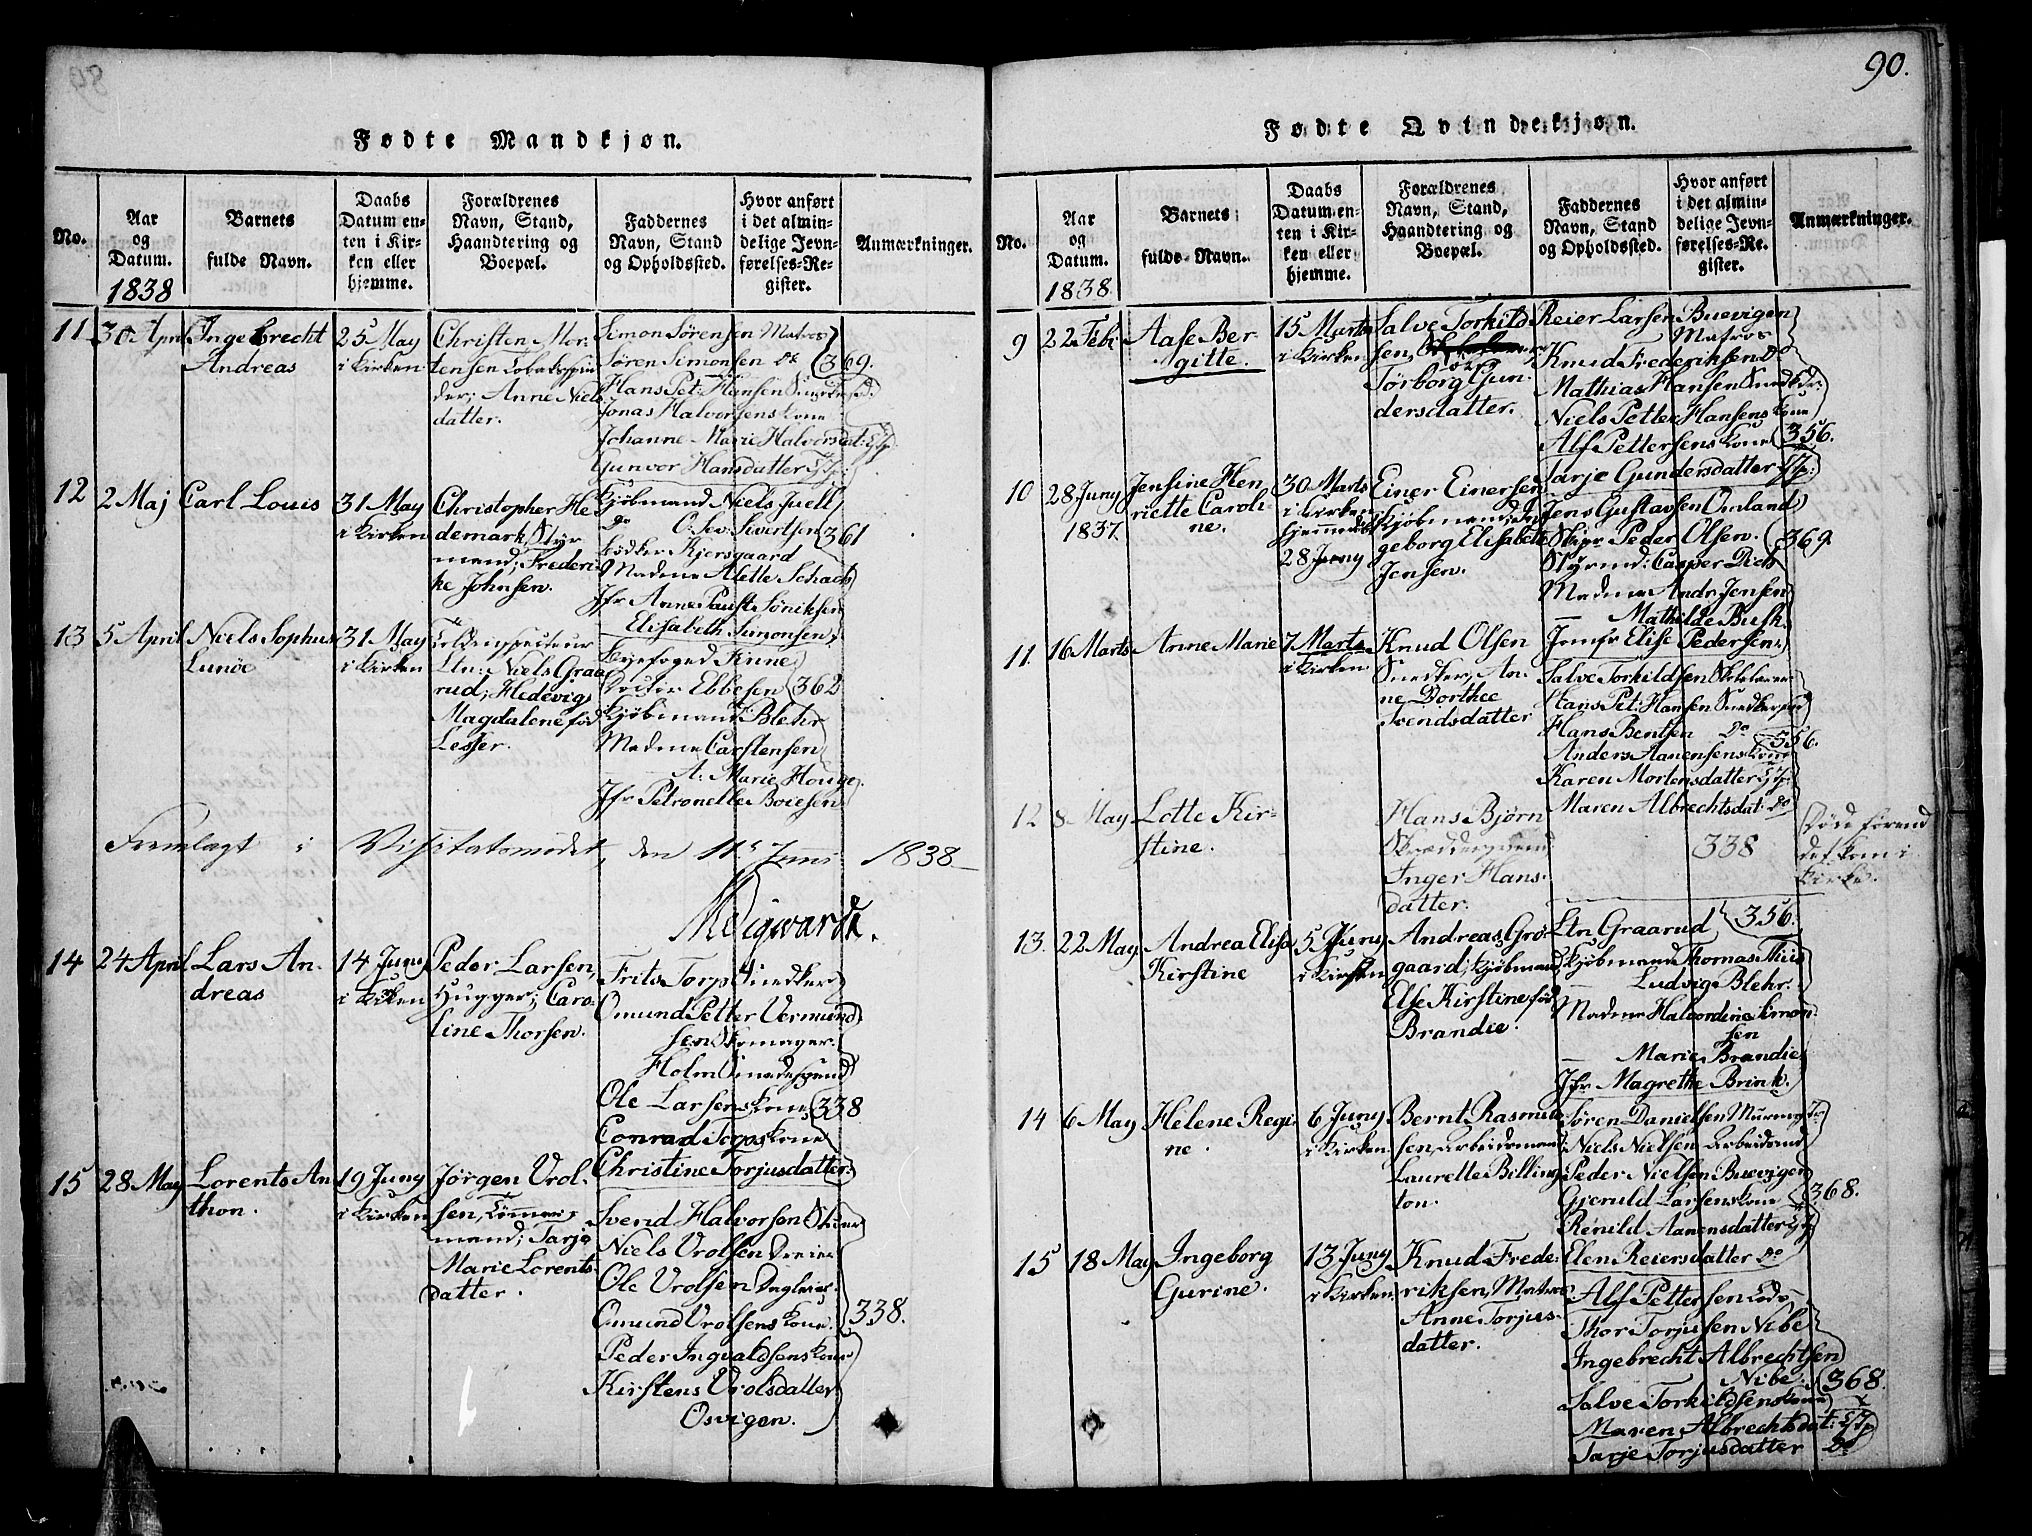 90.
Fødte Mandkjøn.
No.
Aar
og
Datum.
1838
Barnets
fulde Navn.
Daabs
Datum en-
ten i Kir-
ken eller
hjemme.
Forældrenes
Navn, Stand,
Haandtering og
Boepæl.
Faddernes
Navn, Stand
og Opholdssted.
Hvor anført
i det almin-
delige Jevn-
førelses-Re-
gister.
Anmærkninger.
11
30 April
Ingebrecht
Andreas
25 May
i Kirken
Christen Mor-
tensen Tobakspin
der; Anne Niels
datter.
Simon Sørensen Matros
Søren Simonsen Do
Hans Pet: Hansen Snedkersd.
Jonas Halvorsens Kone
Johanne Marie Halvorsdat:
Gunvor Hansdatter
369.
12
2 Maj
Carl Louis
31 May
i Kirken
Christopher He
demark Styr
mand; Frederi-
ke Johnsen.
Kjøbmand Niels Juell
Do O. Sev: Sivertsen
Kjersgaard
Madme Alette Schach
Jfr Anne Paust Søniksen
Elisabeth Simonsen
361
13
5 April
Niels Sophus
Lunøe
31 May
i Kirken
Toldinspecteur
Ltn: Niels Graa
rud; Hedevig
Magdalene fød
Lesser.
Byefoged Finne
Ebbesen
Kjøbmand Blehr
Madme Carstensen
A: Marie Houge
Jfr Petronelle Boiesen
362
Fremlagt i Visitatsmødet, den 11te Juni 1838
14
24 April
Lars An-
dreas
14 Juny
i Kirken
Peder Larsen,
Hugger; Caro-
line Thorsen.
Frits Torp Snedker
Omund Petter Vermund
sen Skomager.
Holm Smedsvend
Ole Larsens Kone
Conrad Torps Kone
Christine Torjusdatter
338
15
28 May
Lorents An
thon.
19 Juny
i Kirken
Jørgen Vrol-
sen, Tømmer-
mand; Tarje
Marie Lorents
datter.
Svend Halvorsen
Niels Vrolsen Dreier
Ole Vrolsen
Omund Vrolsens Kone.
Peder Ingvaldsens Kone
Kirstens Vrolsdatter
Osvigen.
338.
Fødte Qvindekjøn.
No.
Aar
og
Datum.
1838.
Barnets
fulde Navn.
Daabs
Datum en-
ten i Kir-
ken eller
hjemme.
Forældrenes
Navn, Stand,
Haandtering og
Boepæl.
Faddernes
Navn, Stand
og Opholdssted.
Hvor anført
i det almin-
delige Jevn-
førelses-Re-
gister.
Anmærkninger.
9
22 Feb:
Aase Ber-
gitte.
15 Marts
i Kirken
Salve Torkild
sen,
Tørborg Gun-
dersdatter.
Reier Larsen Buevigen
Matros
Knud Frederiksen Do
Mathias Hansen Snedker
Niels Petter Hansens Kone
Alf Pettersens Kone
Tarje Gundersdatter
356.
10
28 Juny
1837.
Jensine Hen
riette Caroli-
ne.
30 Marts
i Kirken
hjemmedøbt
28 Juny
Einer Einersen
Kjøbmand; In-
geborg Elisabeth
Jensen.
Jens Gustavsen Omland
Skipr Peder Olsen.
Styrmd: Casper Dick
Madme Andr Jensen
— Mathilde Bush.
Jomfr Elise Pedersen
369.
11.
16 Marts
Anne Marie
7 Marts
i Kirken
Knud Olsen
Snedker, An-
ne Dorthee
Svendsdatter
Salve Torkildsen
Hans Pet: Hansen Snedkersvd
Hans Bentsen Do
Anders Aanensens Kone
Karen Mortensdatter
Maren Albrechtsdat: Do
356.
12
8 May
Lotte Kir-
stine.
Hans Bjørn
Skræddersvend
Inger Hans-
datter.
338
Døde førend
det kom i
Kirke.
13.
22 May
Andrea Elisa
Kirstine
5 Juny
i Kirken
Andreas Grø-
gaard; Kjøbmand
Else Kirstine, fød
Brandie.
Ltn Graarud
Kjøbmand Thomas This
— Ludvig Blehr.
Madme Halvordine Simon-
sen
— Marie Brandie
Jfr Magrethe Brink.
356.
14
6 May
Helene Regi-
ne.
6 Juny
i Kirken
Bernt Rasmus
sen, Arbeidsmand
Laurette Billing
ton.
Søren Danielsen
Niels Nielsen Arbeidsmd
Peder Nielsen Buevigen
Gjeruld Larsens Kone
Renild Aanensdatter
Elen Reiersdatter Do
368.
15
18 May
Ingeborg
Gurine.
13 Juny
i Kirken
Knud Frede-
riksen, Matros
Anne Torjus-
datter.
Alf Pettersen Lods
Thor Torjusen Nibe
Ingebrecht Albrechtsen
Nibe
Salve Torkildsens Kone
Maren Albrechtsdat:
Tarje Torjusdatter Do
368.